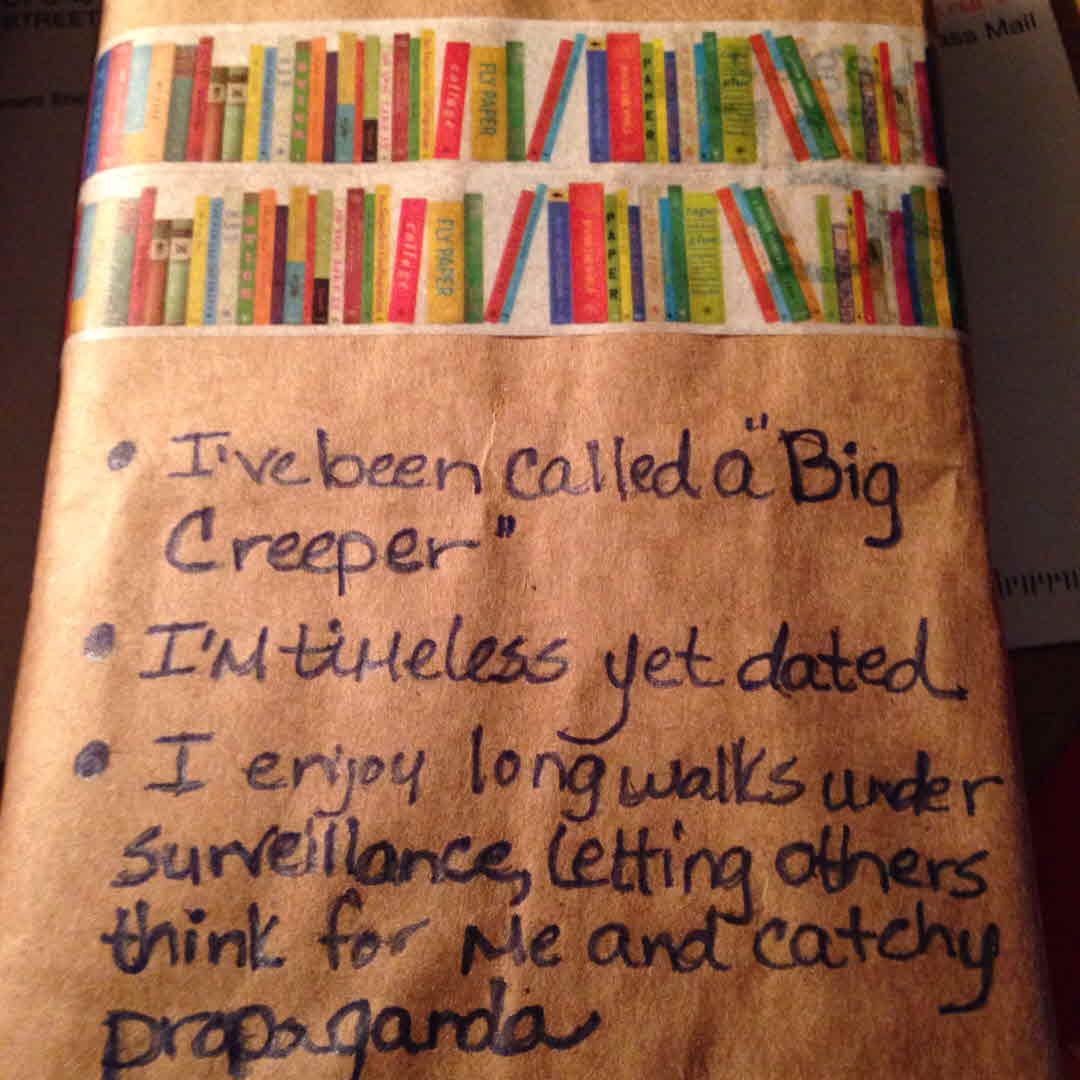 STREET
ass Mail
collage
FLY PAPER
PAPER
glue
collage
FLY PAPER
PAPER
paper
glue
• I've been called a "Big
Creeper"
• I'M tiMeless yet dated
• I enjoy long walks under
surveillance, letting others
think for Me and catchy
propaganda